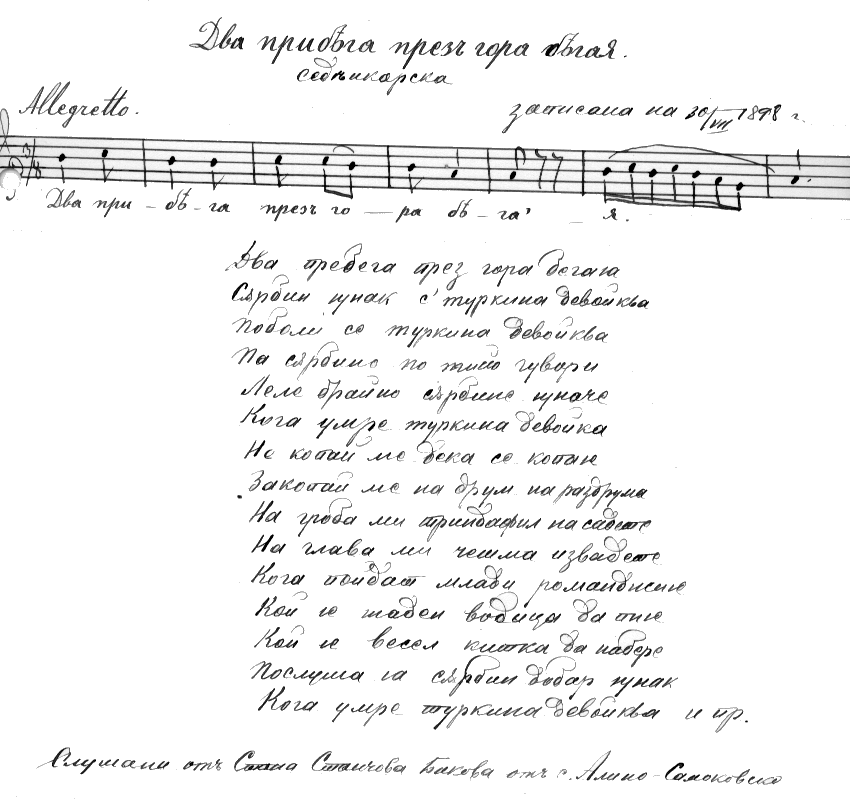 Два прибѣга презъ гора бѣгая.
седѣнкарска
Allegretto.
записана на 30/VII 1898 г.
3/8
Два при - бѣ - га презъ го — ра бѣ - га' - я.
Два пребега през гора бегаю
Сѫрбин юнак с' туркина девойкьа
Поболи се туркина девойква
Па сѫрбине по тийо гувори
Леле брайно сѫрбине юначе
Кога умре туркина девойка
Не копай ме дека се копаю
Закопай ме на друм на раздрума
На гроба ми трйндафил насадете
На глава ми чешма извадете
Кога пойдат млади
Кой ıе жаден водица да пие
Кой ıе весел китка да набере
Послуша ıа сѫрбин добар юнак
Кога умре туркина девойква и пр.
Слушани отъ Станчова Бикова отъ с. Алино - Самоковско